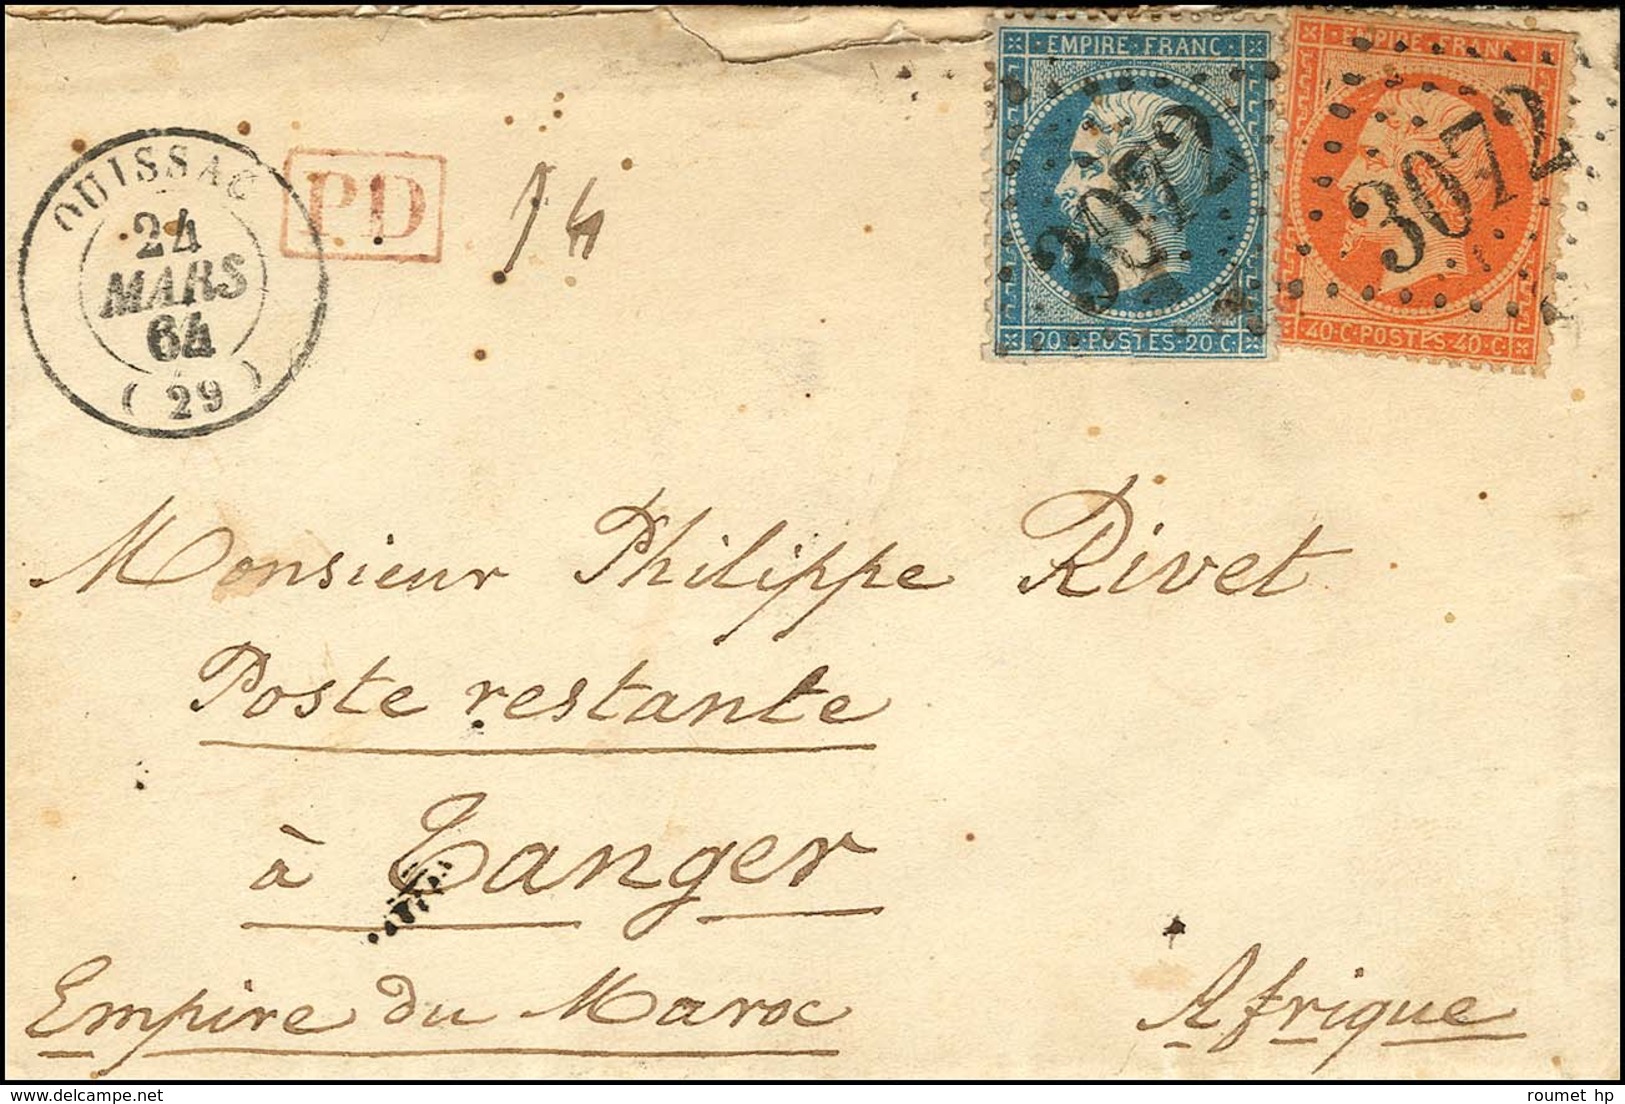 QUISSAC
24
MARS
64
( 29 )
PD
EMPIRE FRANC
3072
20 C POSTES 20 C
EMPIRE FRANC
3072
40 C POSTES 40 C
Monsieur Philippe Rivet
Poste restante
à Tanger
Empire du Maroc Afrique
roumet hp